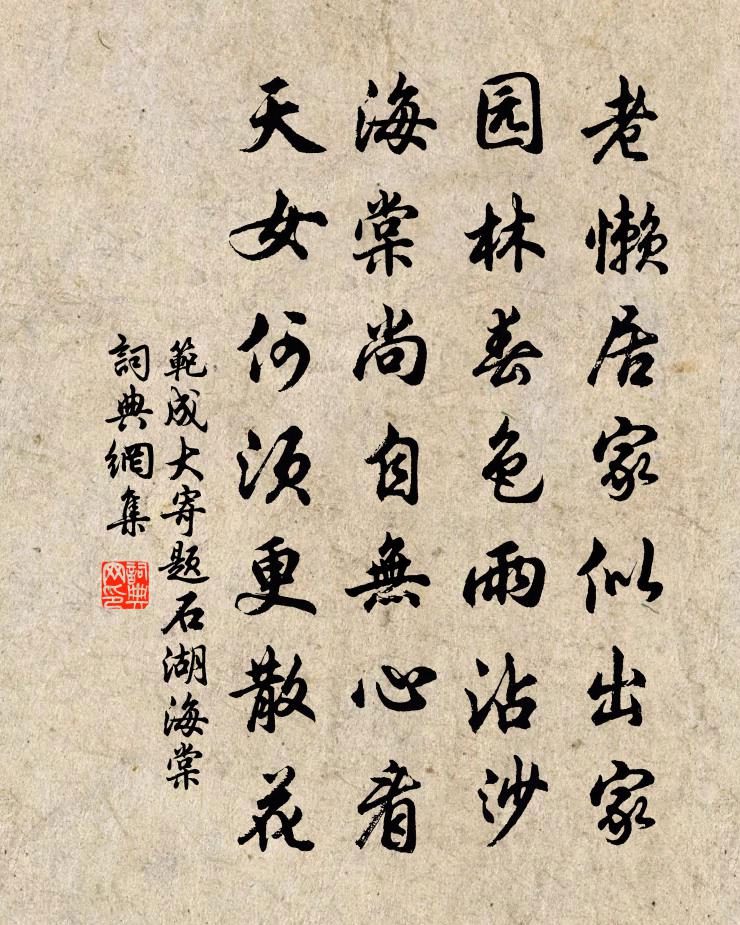 老懒居家似出家
园林春色雨沾沙
海棠尚自無心看
天女何须更散花
範成大寄题石湖海棠
詞典網集
詞典网印